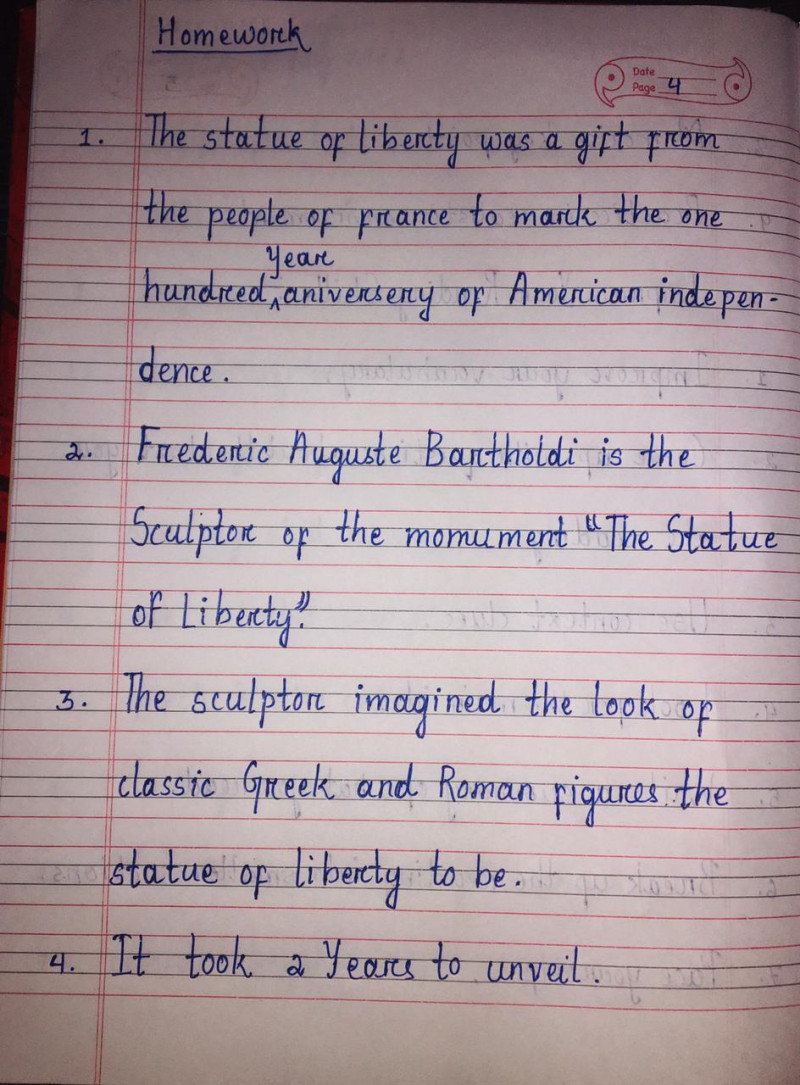 Homework
Date
Page 4
1. The statue of liberty was a gift from
the people of france to mark the one
year
hundred ^ aniversery of American indepen-
dence.
2. Frederic Auguste Bartholdi is the
Sculptor of the momument "The Statue
of Liberty".
3. The sculptor imagined the look of
classic Greek and Roman figures the
statue of liberty to be.
4. It took 2 Years to unveil.